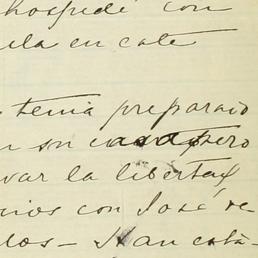 hospedé con
ela en cate
tenia preparado
n su casa pero
var la libertad
nios con José de
los - Han catà-